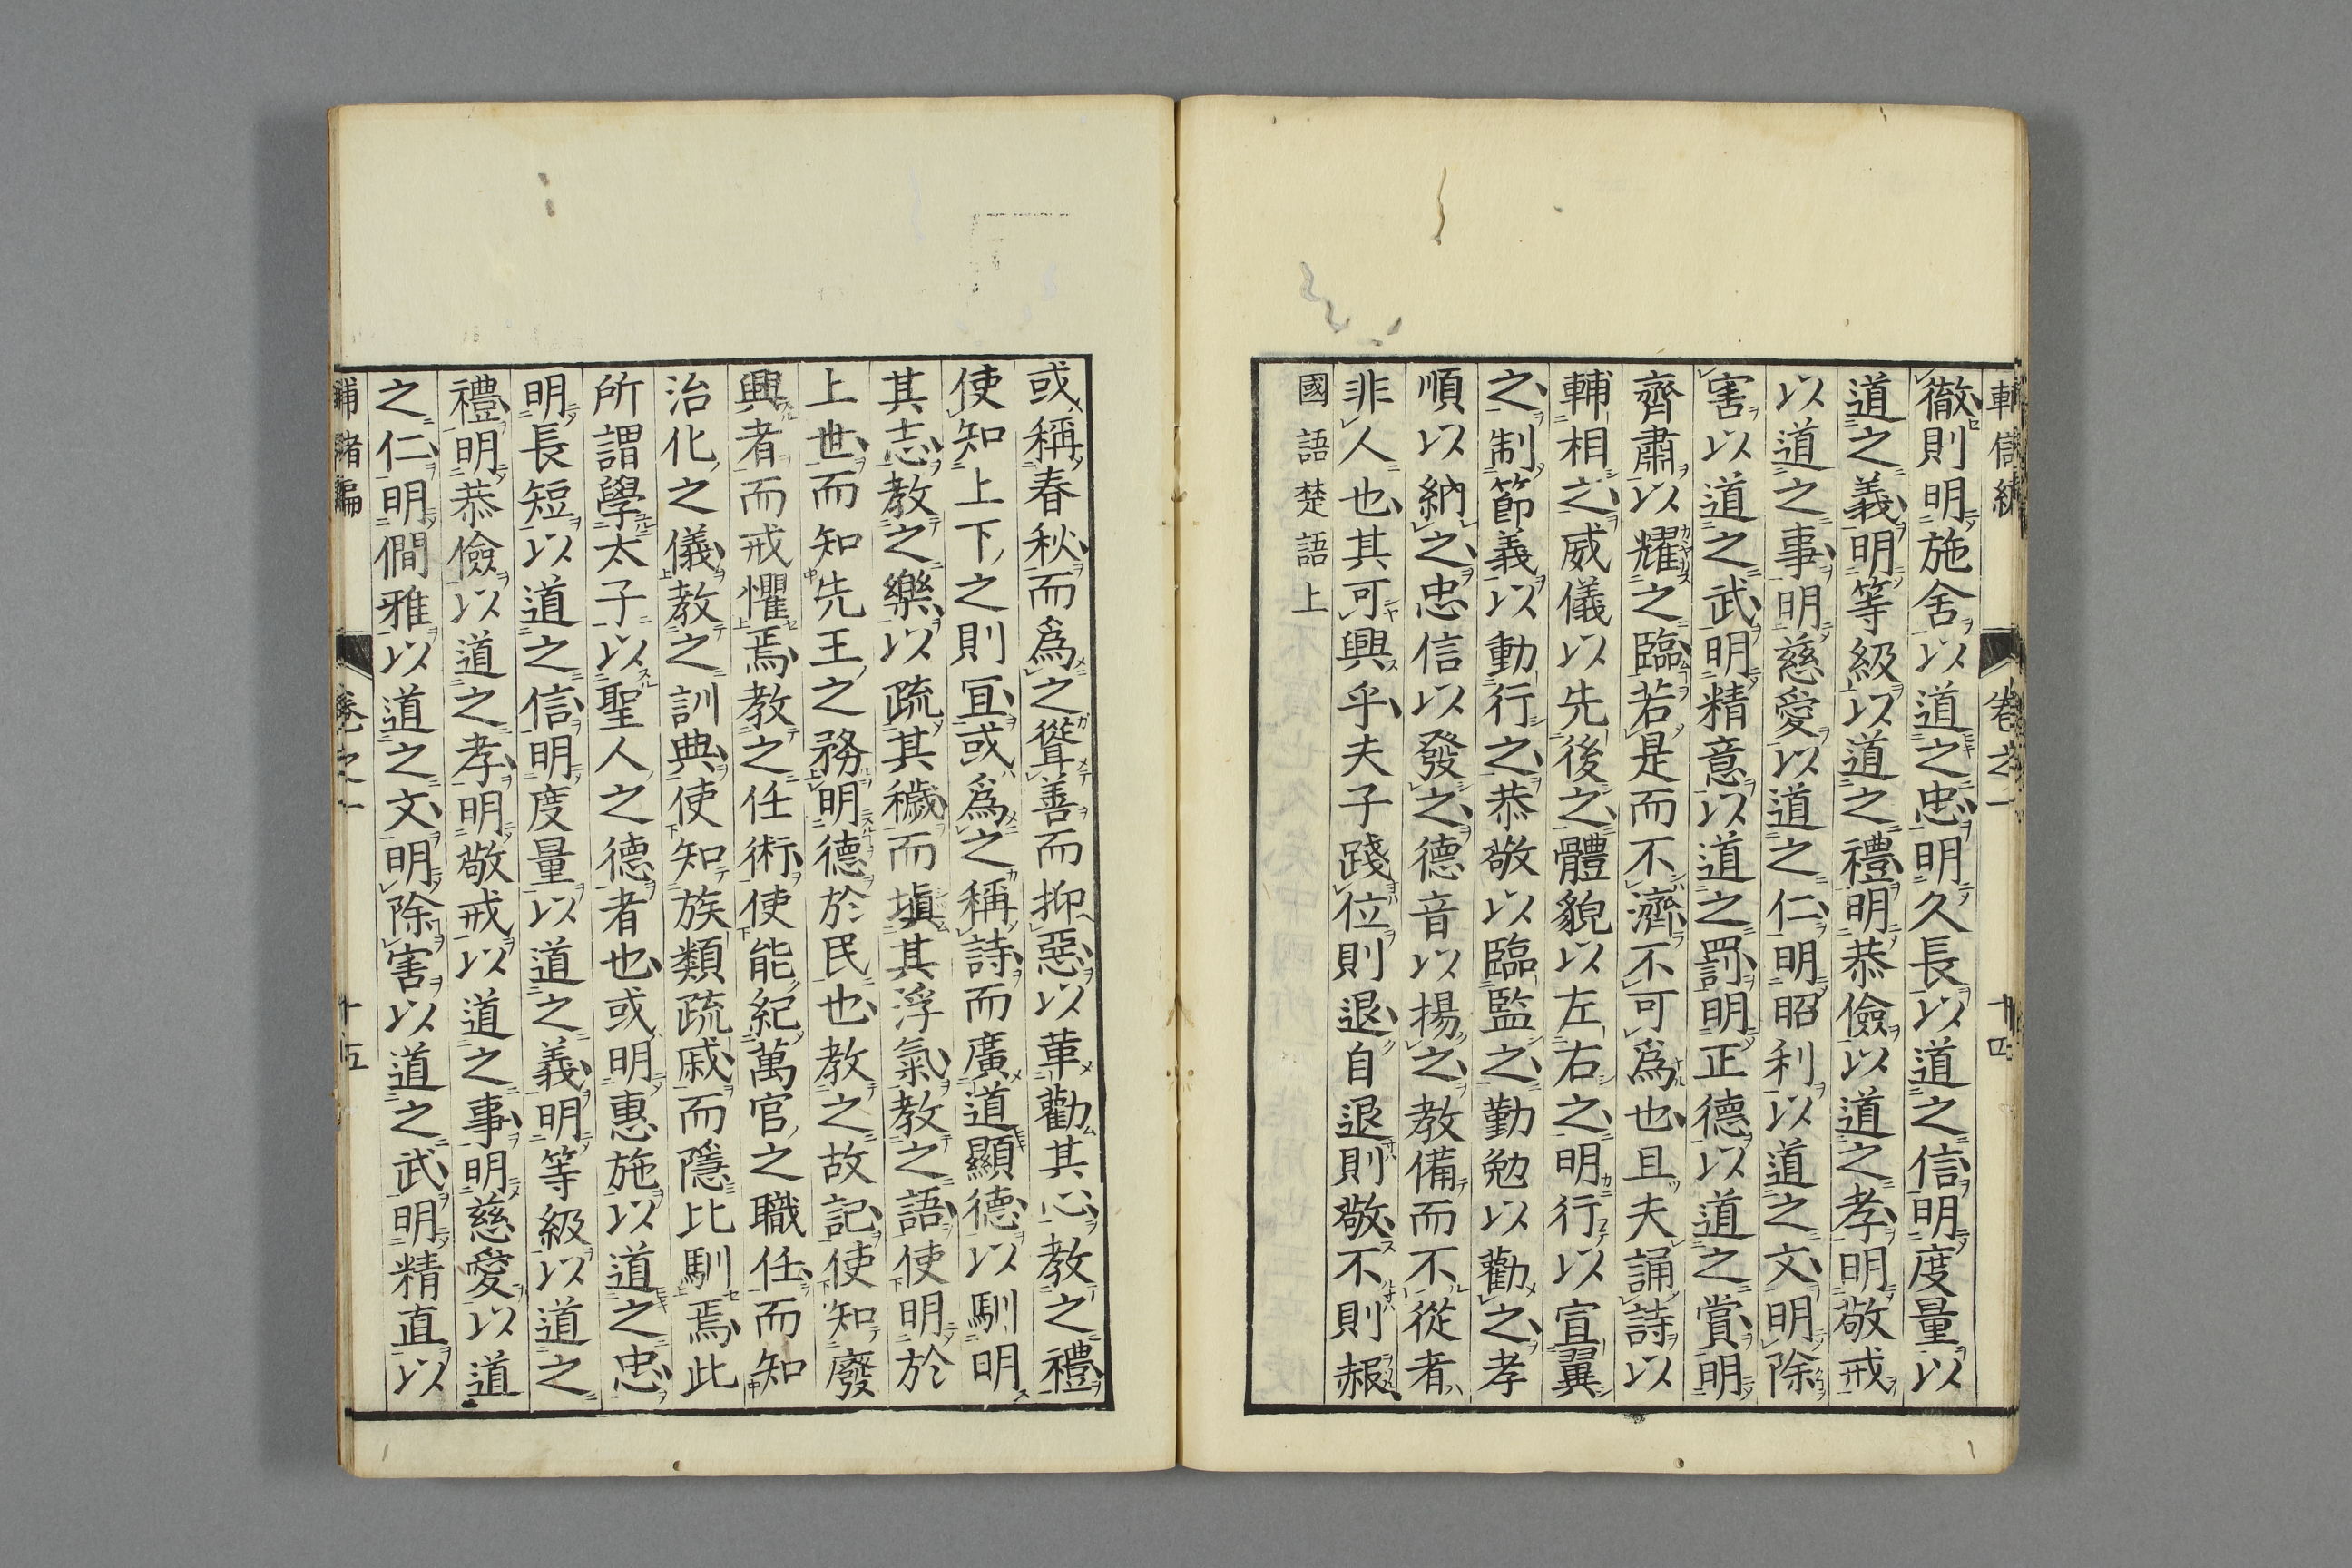 卷之一 十四
徹則明施舍以道之忠明久長以道之信明度量以
道之義明等級以道之禮明恭儉以道之孝明敬戒
以道之事明慈愛以道之仁明昭利以道之文明除
害以道之武明精意以道之罰明正德以道之賞明
齊肅以耀之臨若是而不濟不可爲也且夫誦詩以
輔相之威儀以先後之體貌以左右之明行以宣翼
之制節義以動行之恭敬以臨監之勤勉以勸之孝
順以納之忠信以發之德音以揚之教備而不從者
非人也其可興乎夫子踐位則退自退則敬不則赧
國語楚語上
或稱春秋而爲之聳善而抑惡以革勸其心教之禮
使知上下之則宜或爲之稱詩而廣道顯德以馴明
其志教之樂以疏其穢而塡其浮氣教之語使明於
上世而知先王之務明德於民也教之故記使知廢
興者而戒懼焉教之任術使能紀萬官之職任而知
治化之儀教之訓典使知族類疏戚而隱比馴焉此
所謂學太子以聖人之德者也或明惠施以道之忠
明長短以道之信明度量以道之義明等級以道之
禮明恭儉以道之孝明敬戒以道之事明慈愛以道
之仁明僩雅以道之文明除害以道之武明精直以
輔儲編 卷之一 十五